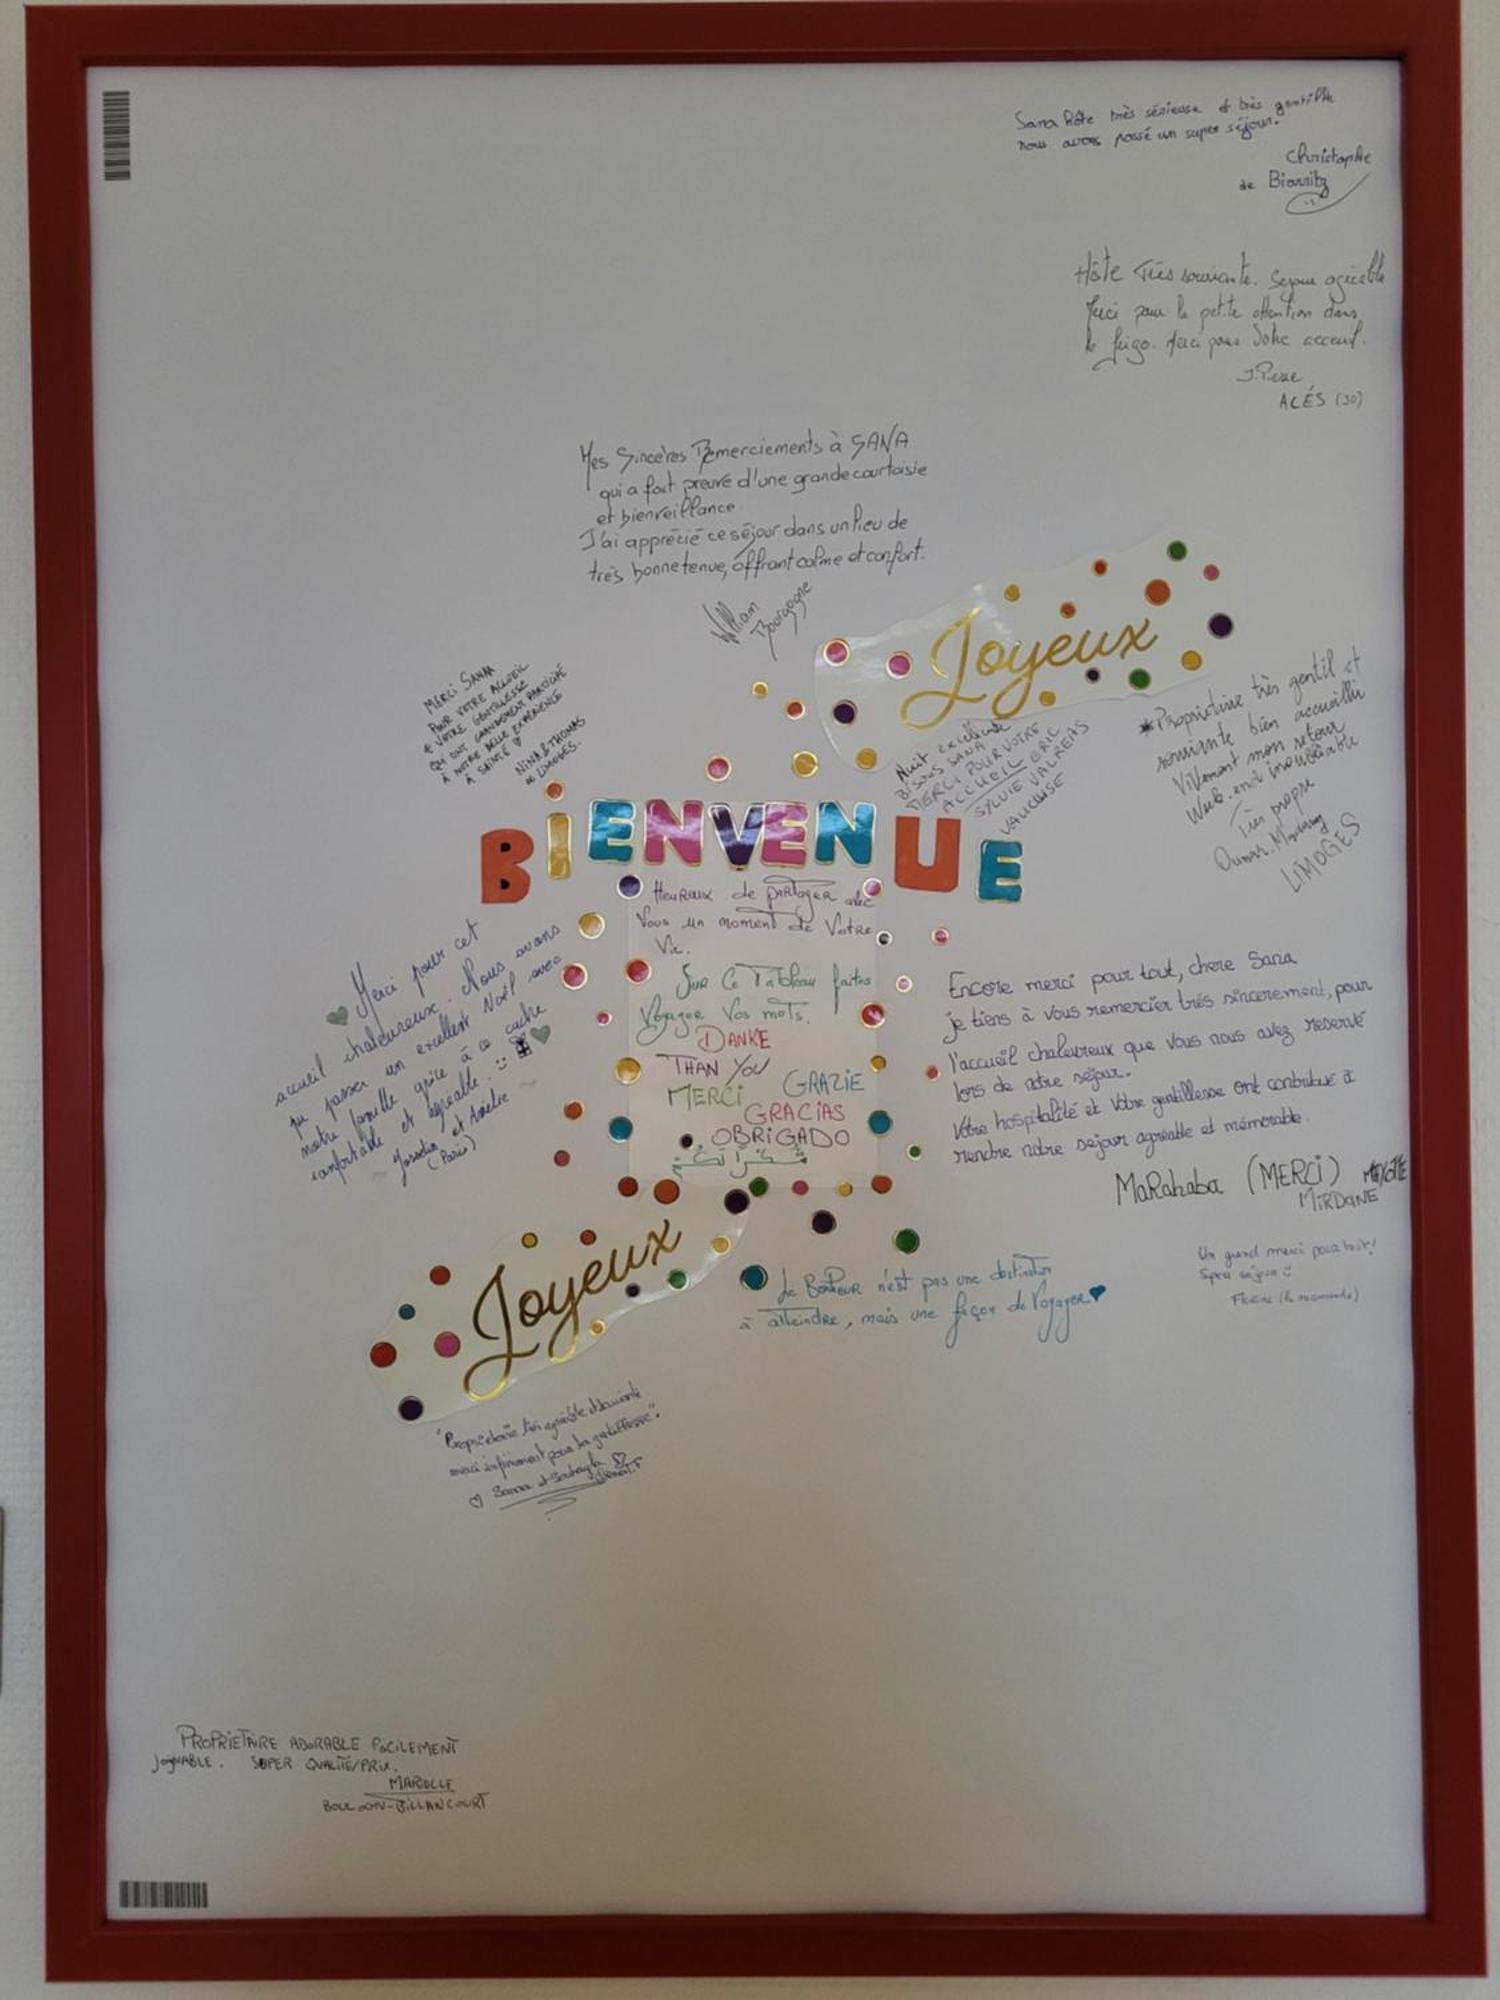 Sana hôte très sérieuse et très gentille
nous avons passé un super séjour.
Christophe
de Biarritz
Hôte très souriante. Sejour agréable
Merci pour la petite attention dans
le frigo. Merci pour Votre acceuil.
J.Pierre
ALÉS (30)
Mes Sincères Remerciements à SANA
qui a fait preuve d'une grande courtoisie
et bienveillance.
J'ai apprécié ce séjour dans un lieu de
très bonne tenue, offrant calme et confort.
William
Bourgogne
Joyeux
MERCI SANA
POUR VOTRE ACCUEIL
& VOTRE GENTILLESSE
QUI ONT GRANDEMENT PARTICIPÉ
À NOTRE BELLE EXPÉRIENCE
À SAINTÉ
NINA & THOMAS
de LIMOGES.
Nuit excellente
BISOUS SANA
MERCI POUR VOTRE
ACCUEIL ERIC
SYLVIE VALREAS
VAUCLUSE
*Propriétaire très gentil et
souriante bien accueilli
Vivement mon retour
Week-end inoubliable
Très propre
LIMOGES
BIENVENUE
Heureux de partager avec
Vous un moment de Votre
Vie.
Sur Ce Tableau faites
Voyager Vos mots.
DANKE
THAN YOU
GRAZIE
MERCI
GRACIAS
OBRIGADO
شكرا
Merci pour cet
accueil chaleureux. Nous avons
pu passer un excellent Noël avec
notre famille grâce à ce cadre
confortable et agréable. :)
et Amélie
(Paris)
Encore merci pour tout, chere Sana
je tiens à vous remercier très sincerement, pour
l'accueil chaleureux que vous nous avez reservé
lors de notre séjour.
Votre hospitalité et Votre gentillesse ont contribué à
rendre notre sejour agréable et mémorable.
MaRahaba (MERCI) MAYOTTE
MIRDANE
Un grand merci pour tout!
Joyeux
Le BonHeur n'est pas une destination
à atteindre, mais une façon de Voyager
"Propriétaire très agréable et souriante
merci infiniment pour ta gentillesse".
PROPRIETAIRE ADORABLE FACILEMENT
JOIGNABLE. SUPER QUALITÉ/PRIX.
MAROLLE